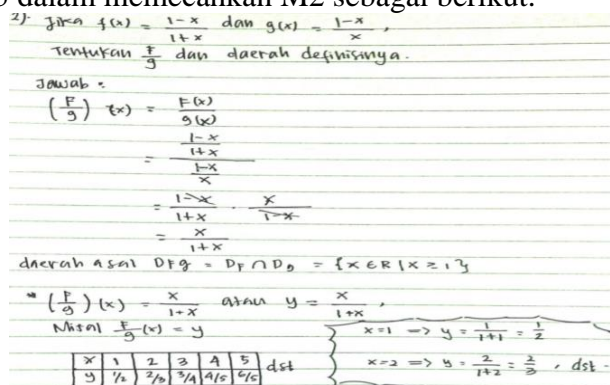 dalam memecahkan M2 sebagai berikut.
2). Jika f(x) = (1-x)/(1+x) dan g(x) = (1-x)/x,
Tentukan F/g dan daerah definisinya.
Jawab :
(F/g) (x) = F(x)/g(x)
= ((1-x)/(1+x))/((1-x)/x)
= (1-x)/(1+x) · x/(1-x)
= x/(1+x)
daerah asal DFg = DF ∩ Dg = {x ∈ R | x ≥ 1}
* (F/g)(x) = x/(1+x) atau y = x/(1+x),
Misal F/g(x) = y
x=1 => y = 1/(1+1) = 1/2
x=2 => y = 2/(1+2) = 2/3, dst
x 1 2 3 4 5 dst
y 1/2 2/3 3/4 4/5 6/5